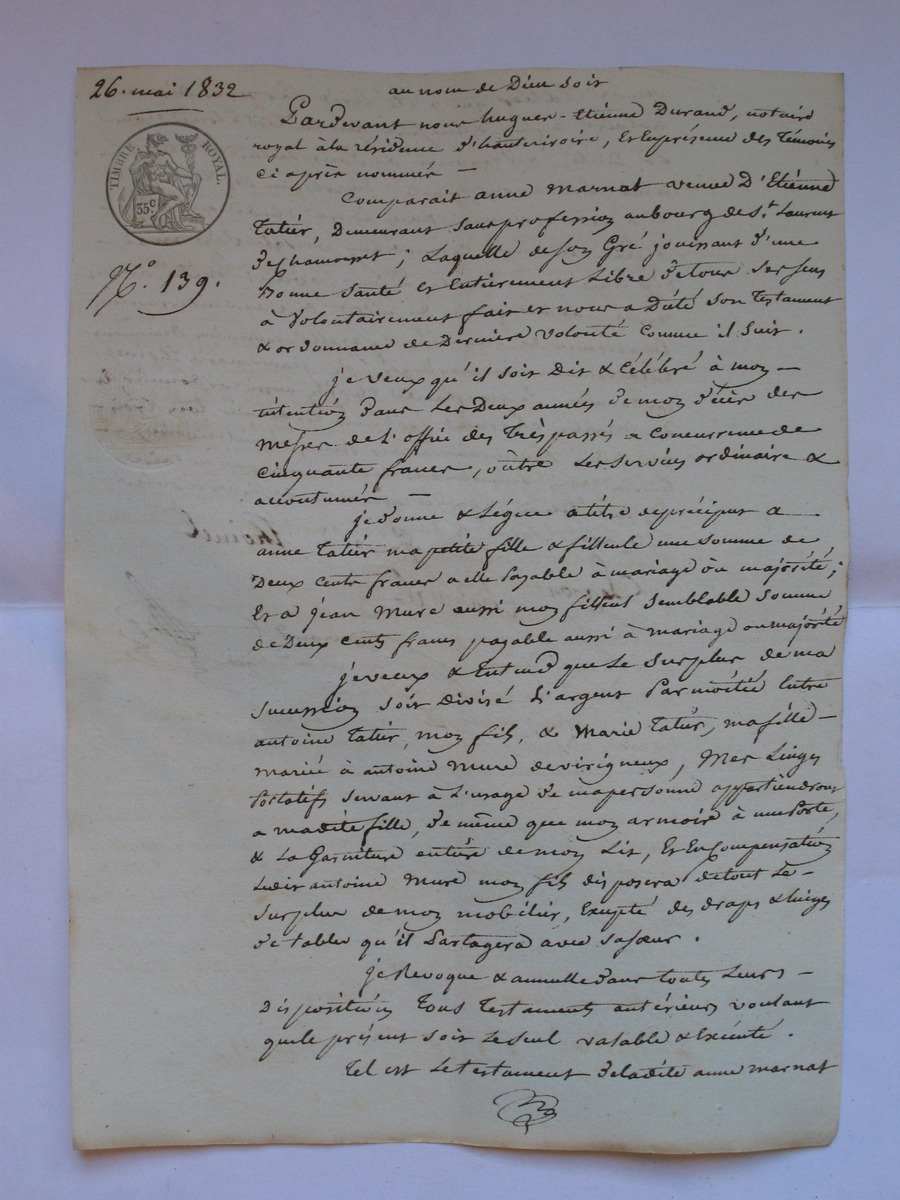 26. mai 1832
au nom de Dieu soit
Pardevant nous hugues-Etienne Durand, notaire
royal à la résidence d'hauterivoire, et En présence des témoins
ci après nommés —
Comparait anne marnat veuve D'Etienne
Tatier, Demeurant sans profession au bourg de St. Laurent
de Chamousset; Laquelle de son Gré jouissant d'une
Bonne Santé et Entièrement Libre de tous ses sens
à volontairement fait et nous a Dicté son testament
& ordonnance de Dernière volonté Comme il suit.
je veux qu'il soit Dit & Célébré à mon —
intention dans Les Deux années de mon décès des
messes de L'office des Trépassés a Concurrence de
Cinquante francs, outre Les services ordinaire &
accoutumés —
je donne & Lègue a titre de préciput a
anne Tatier ma petite fille & filleule une somme de
Deux cents francs a elle Payable à mariage ou majorité;
Et a jean Mure aussi mon filleul semblable somme
de Deux cents francs payable aussi à mariage ou majorité
je veux & Entend que Le surplus de ma
succession soit divisé L'argent Par moitié Entre
antoine Tatier, mon fils, & Marie Tatier, ma fille —
mariée à antoine mure de virigneux, Mes Linges
Portatifs servant à L'usage de ma personne appartiendront
a madite fille, de même que mon armoire à une Porte,
& La Garniture entière de mon Lit, Et En Compensation
Ledit antoine Mure mon fils disposera de tout Le —
surplus de mon mobilier, Excepté des draps & Linges
de table qu'il Partagera avec sa sœur.
je Revoque & annulle dans toutes Leurs —
Dispositions Tous Testaments antérieurs voulant
que le présent soit Le seul valable & Exécuté.
Tel est Le testament de ladite anne marnat
TIMBRE ROYAL.
35 c
No. 139.